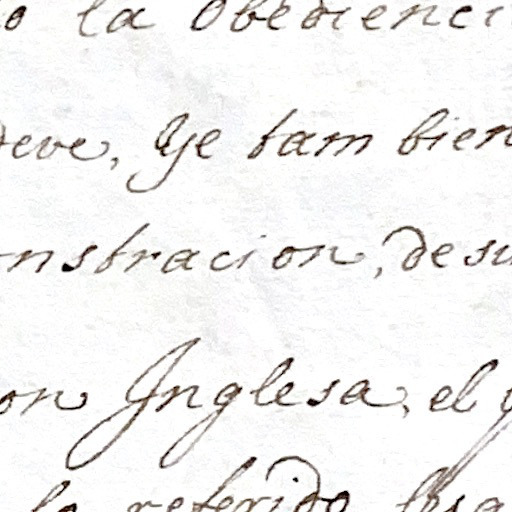 o la Obedienci
deve, Ye tam bien
nstracion, de su
on Inglesa, el
lo referido